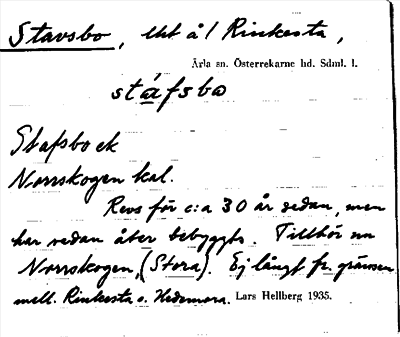 Stavsbo, utt å/ Rinkesta,
Ärla sn. Österrekarne hd. Sdml. l.
stáfsbo
Stafsbo ek
Norrskogen kal.
Revs för c:a 30 år sedan, men
har sedan åter bebyggts. Tillhör nu
Norrskogen, (Stora). Ej långt fr. gränsen
mell. Rinkesta o. Hedemora. Lars Hellberg 1935.